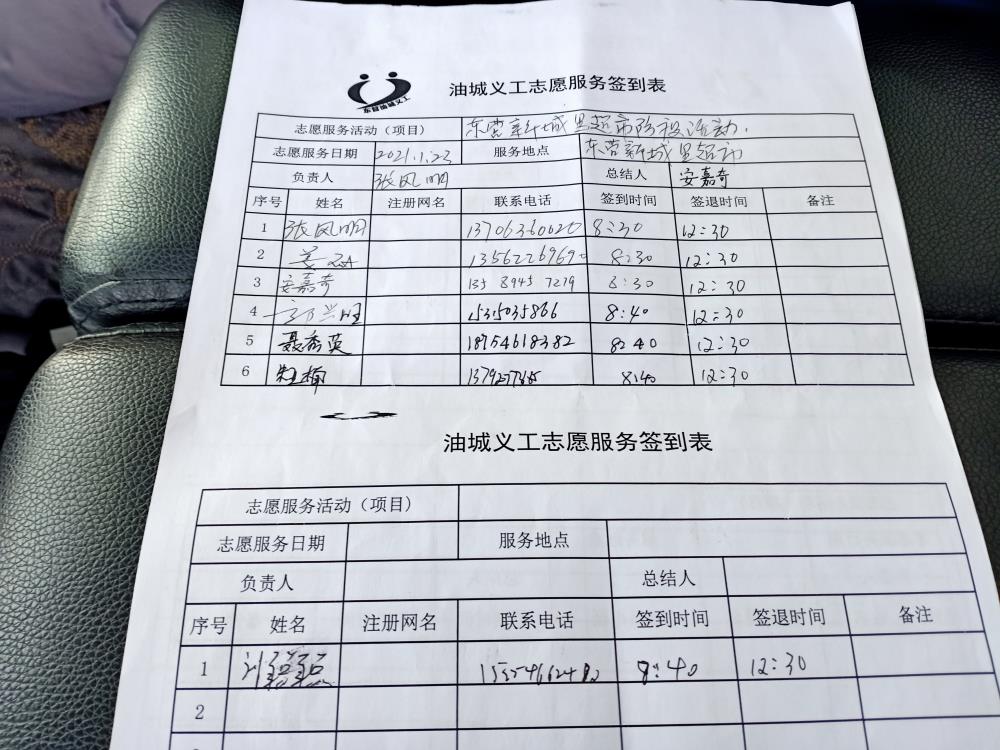 东营油城义工
油城义工志愿服务签到表
志愿服务活动（项目） 东营新城里超市防投活动.
志愿服务日期 2021.1.23 服务地点 东营新城里超市
负责人 张凤明 总结人 安嘉奇
序号 姓名 注册网名 联系电话 签到时间 签退时间 备注
1 张凤明 13706360020 8:30 12:30
2 8:30 12:30
3 安嘉奇 135 8945 7279 8:30 12:30
4 8:40 12:30
5 聂秀英 18754618382 8:40 12:30
6 8:40 12:30
油城义工志愿服务签到表
志愿服务活动（项目）
志愿服务日期 服务地点
负责人 总结人
序号 姓名 注册网名 联系电话 签到时间 签退时间 备注
1 8:40 12:30
2